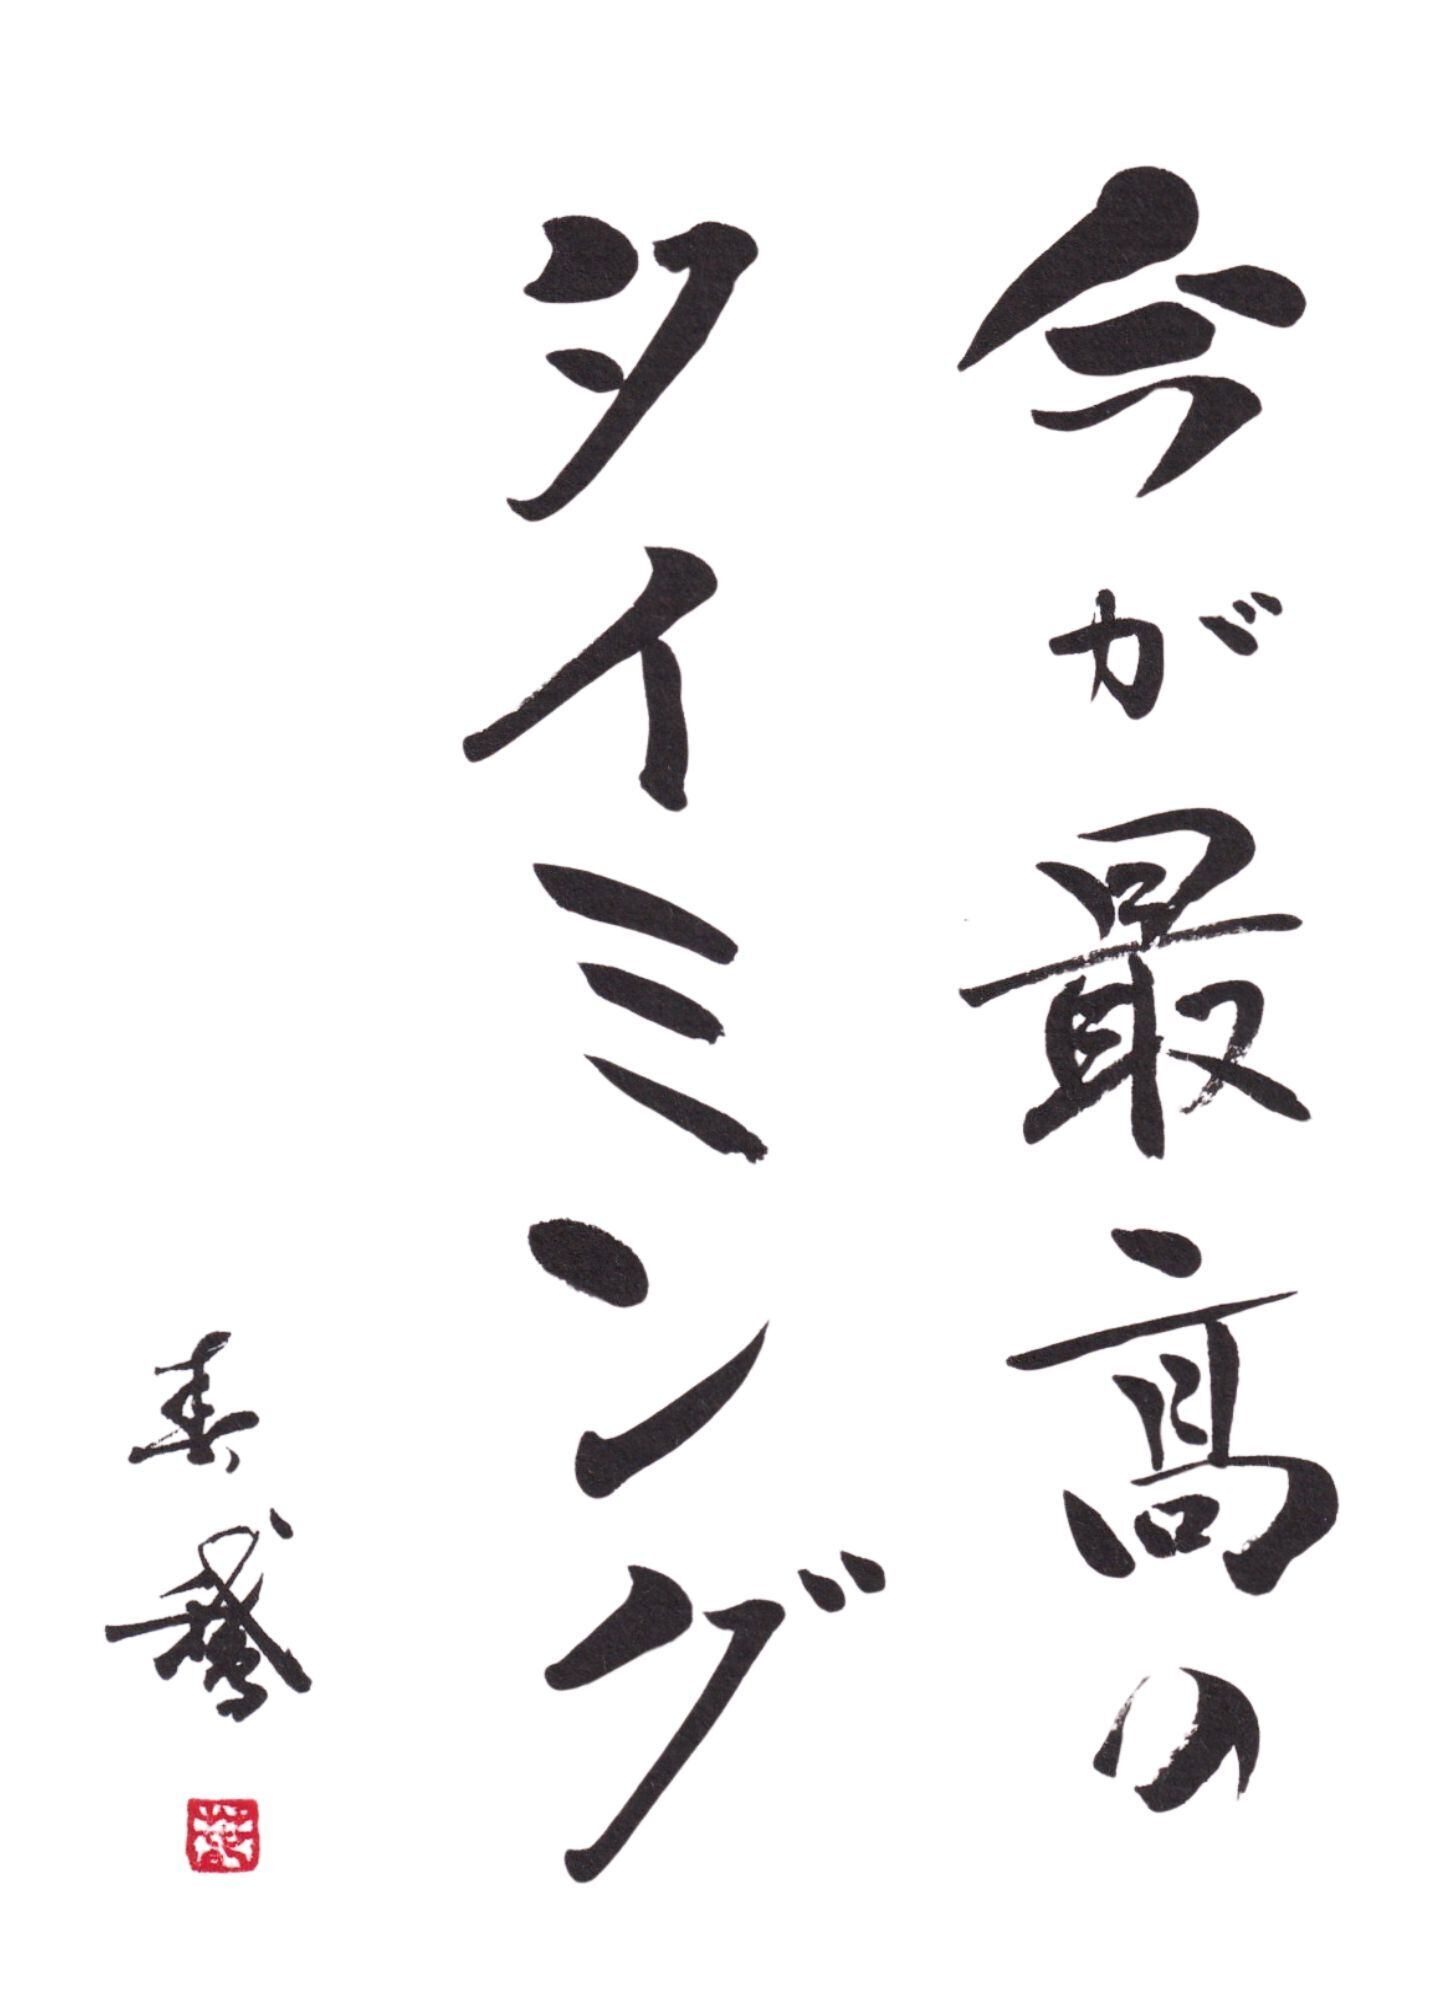 今が最高の
タイミング